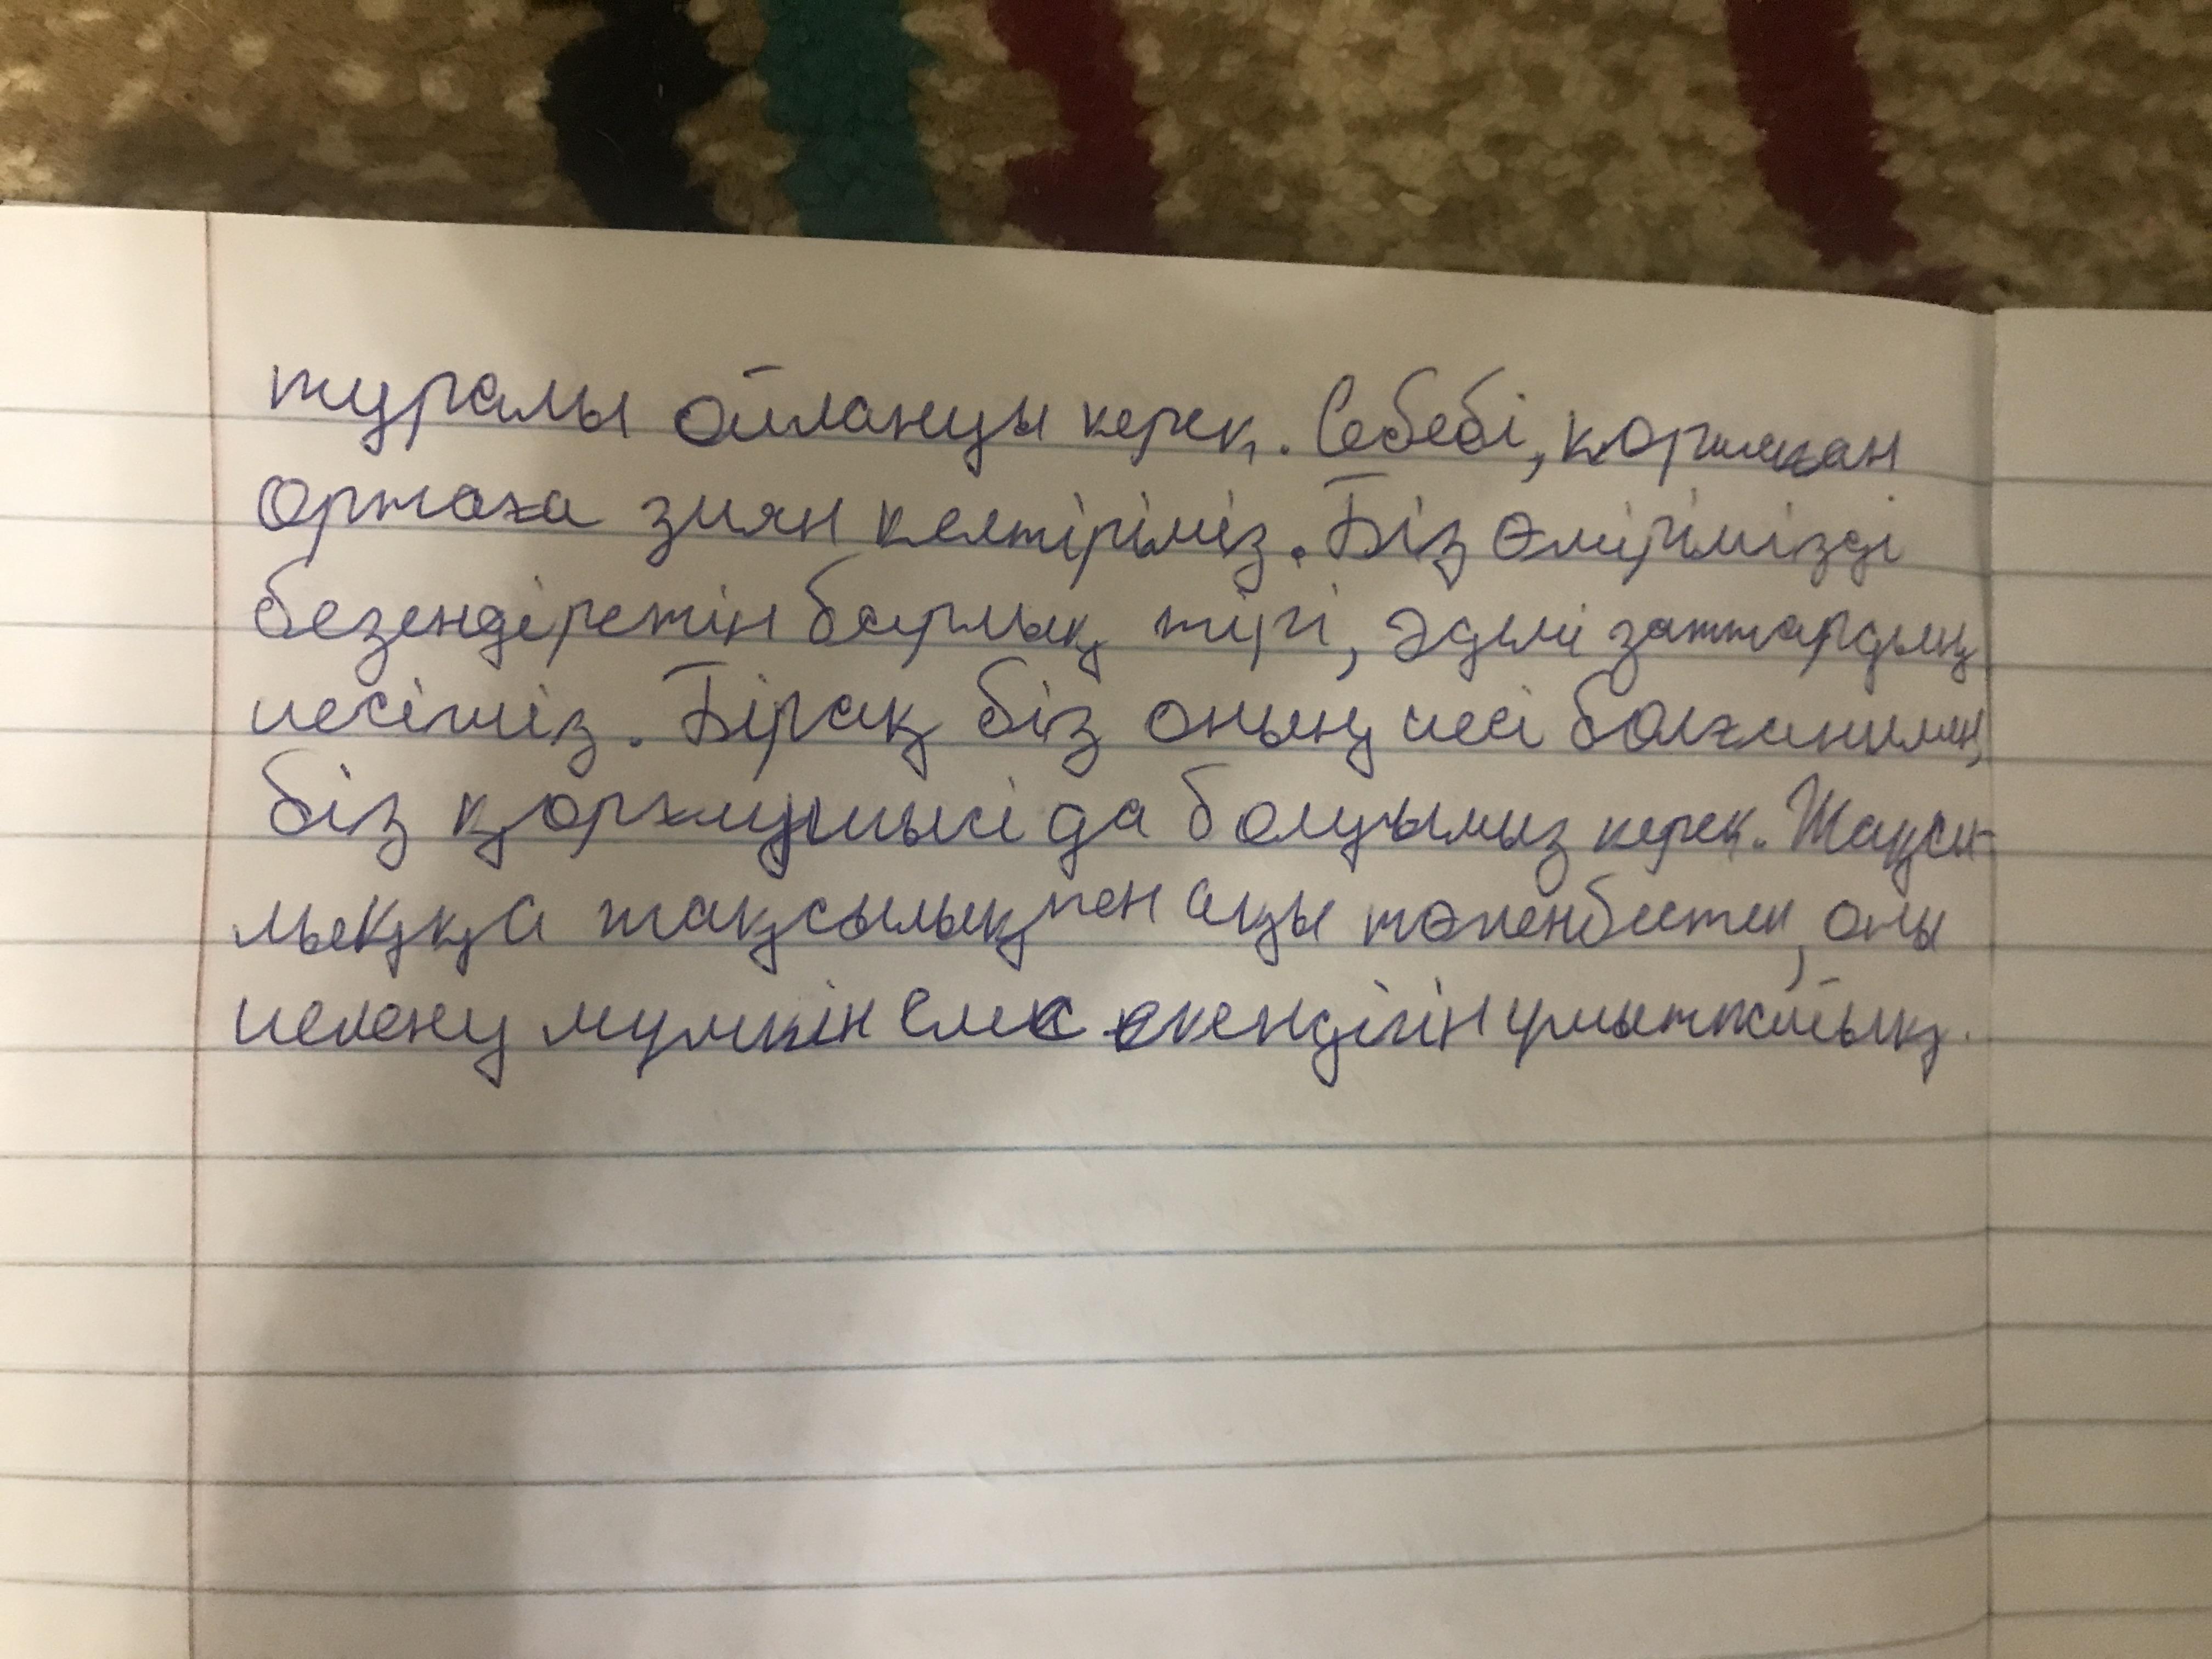 туралы ойлануы керек. Себебі, қоршаған
ортаға зиян келтіріміз. Біз өмірімізді
безендіретін барлық тірі, әдемі заттардың
иесіміз. Бірақ біз оның иесі болғанымен,
біз қорғаушысі да болуымыз керек. Жақсы-
лыққа жақсылықпен ақы төленбестен, оны
иелену мүмкін емес екендігін ұмытпайық.